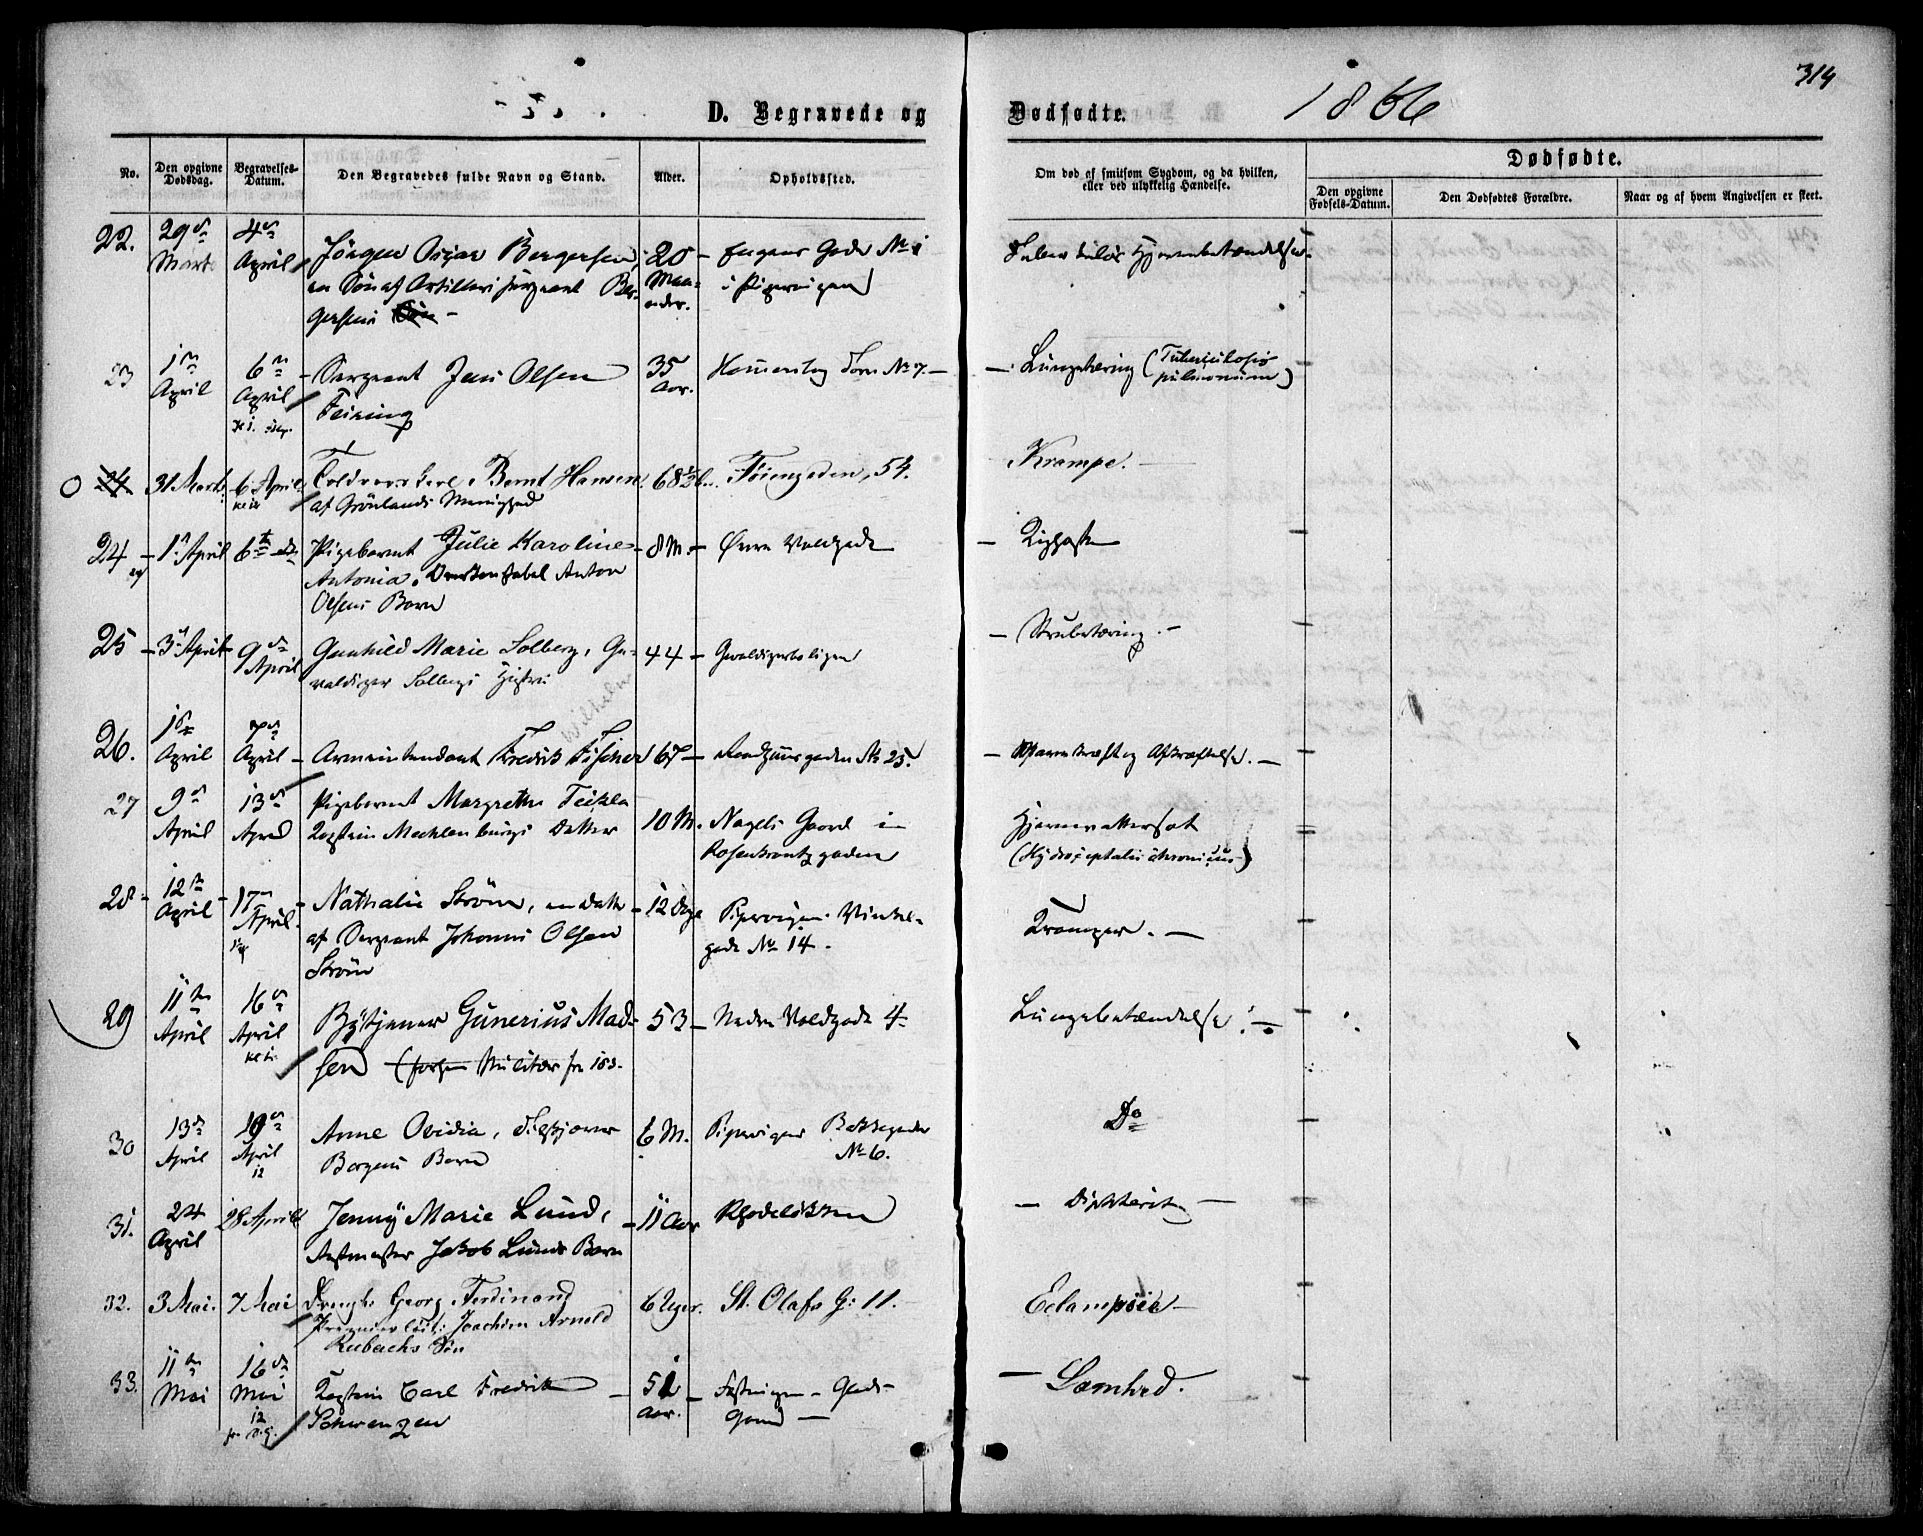 314
D. Begravede og Dødfødte. 1866
No.
Den opgivne Dødsdag.
Begravelses-Datum.
Den Begravedes fulde Navn og Stand.
Alder.
Opholdssted.
Om død af smitsom Sygdom, og da hvilken, eller ved ulykkelig Hændelse.
Dødfødte.
Den opgivne Fødsels-Datum.
Den Dødfødtes Forældre.
Naar og af hvem Angivelsen er skeet.
22. 29de Marts 4de April Jørgen Oscar Bergersen, 20 Maaneder.
en Søn af Artilleri sergeant Bergersen
i Pipervigen
23 1ste April 6te April Sergeant Jens Olsen 35 Aar. No 7. Lungetæring (Tuberculosis pulmonum)
Teising
24 31 Marts 6 April Bernt Hansen 68½ 54. Krampe.
af Grønlands Menighed
24 1ste April 6te Pigebarnet Julie Karoline 8 M. Øvre Voldgade Kighoste
Antonia, Overkonstabel Anton
Olsens Barn
25 3die April 9de April Gunhild Marie Solberg, Ge- 44 Gevaldigerboligen Strubetæring.
valdiger Solbergs Hustru
Wilhelm
26. April 7de April Armeintendant Fredrik Fischer 67 No 25. og Afkræftelse.
27 9de April 13de April Pigebarnet Margrethe Teckla 10 M. Nagels Gaard i Hjernevattersot
Kaptein Mechlenburgs Datter Rosenkrantzgaden (Hydrocephalus chronicus)
28 12te April 17de April Nathalie Strøm, en Datter 12 Dage Pipervigen Vinkel- Kramper.
af Sergeant Johannes Olsen gade No 14.
Strøm
29 11te April 16de April Bytjener Gunerius Mad- 53 Nedre Voldgade 4 Lungebetændelse.
sen
30 13de April 19de April Anne Ovidia, 6 M. Pipervigen Bakkegaden Do
Borgens Barn No 6.
31. 24 April 28 April Jenny Marie Lund, 11 Aar Rhodeløkken Diphterit
Jakob Lunds Barn
32. 3 Mai. 7 Mai Georg Ferdinand 6 Uger. St. Olafs G: 11. Eclampsie
Premierløit: Joachim Arnold
Rubachs Søn
33. 11te Mai 16de Mai Kaptein Carl Fredrik 51 Aar. Fæstningen Lamhed.
Schwenzen